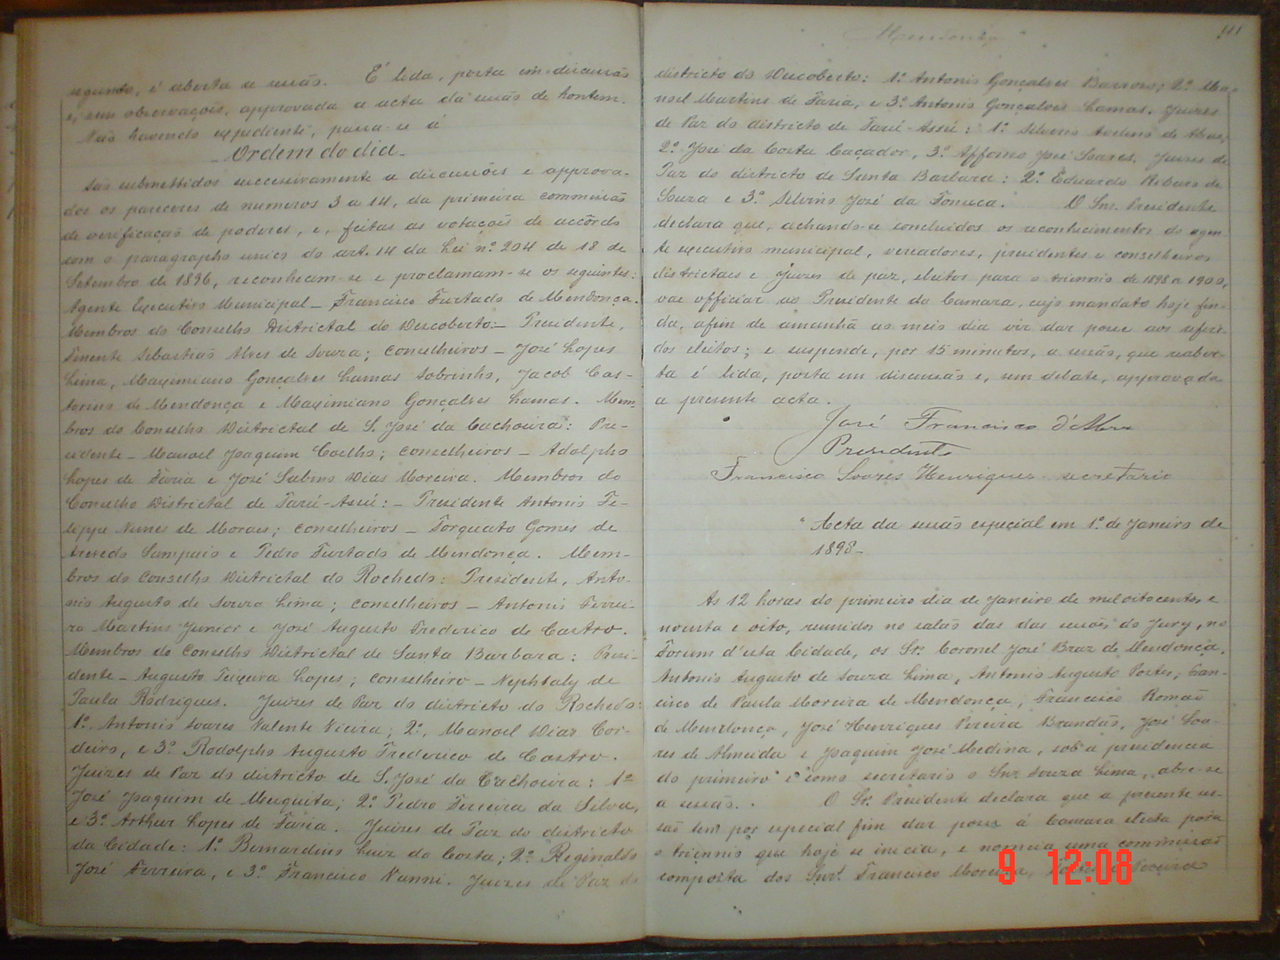 segundo, é aberta a sessão. É lida, posta em discussão
e, sem observações, approvada a acta da sessão de hontem.
Não havendo expediente, passa-se á
Ordem do dia
São submettidos successivamente a discussões e approva-
dos os pareceres de numeros 3 a 14, da primeira commissão
de verificação de poderes, e, feitas as votações de accôrdo
com o paragrapho unico do art. 14 da Lei nº 204 de 18 de
Setembro de 1896, reconhecem-se e proclamam-se os seguintes:
Agente Executivo Municipal - Francisco Furtado de Mendonça.
Membros do Conselho Districtal do Descoberto:- Presidente,
Tenente Sebastião Alves de Souza; Conselheiros - José Lopes
Lima, Maximiano Gonçalves Lamas Sobrinho, Jacob Cas-
torino de Mendonça e Maximiano Gonçalves Lamas. Mem-
bros do Conselho Districtal de S. José da Cachoeira: Pre-
sidente - Manoel Joaquim Coelho; Conselheiros - Adolpho
Lopes de Faria e José Sabino Dias Moreira. Membros do
Conselho Districtal de Tarú-Assú:- Presidente Antonio Fe-
lippe Nunes de Moraes; Conselheiros - Torquato Gomes de
Azevedo Sampaio e Pedro Furtado de Mendonça. Mem-
bros do Conselho Districtal do Rochedo: Presidente, Anto-
nio Augusto de Souza Lima; Conselheiros - Antonio Ferrei-
ra Martins Junior e José Augusto Frederico de Castro.
Membros do Conselho Districtal de Santa Barbara: Presi-
dente - Augusto Teixeira Lopes; Conselheiro - Nephtaly de
Paula Rodrigues. Juizes de Paz do districto do Rochedo:
1º Antonio Soares Valente Vieira; 2º, Manoel Dias Cor-
deiro, e 3º Rodolpho Augusto Frederico de Castro.
Juizes de Paz do districto de S. José da Cachoeira: 1º
José Joaquim de Mesquita; 2º Pedro Ferreira da Silva,
e 3º Arthur Lopes de Faria. Juizes de Paz do districto
da Cidade: 1º Bernardino Luiz da Costa; 2º Reginaldo
José Ferreira, e 3º Francisco Nanni. Juizes de Paz do
Mendonça
districto do Descoberto: 1º Antonio Gonçalves Barroso; 2º Ma-
noel Martins de Faria, e 3º Antonio Gonçalves Lamas. Juizes
de Paz do districto de Tarú-Assú: 1º Silverio Avelino de
2º José da Costa Caçador, 3º Affonso José Soares. Juizes de
Paz do districto de Santa Barbara: 2º Eduardo Ribeiro de
Souza e 3º Silvino José da Fonseca. O Snr. Presidente
declara que, achando-se concluidos os reconhecimentos do agen-
te executivo municipal, vereadores, presidentes e conselheiros
districtaes e juizes de paz, eleitos para o triennio de 1898 a 1900,
vae officiar ao Presidente da Camara, cujo mandato hoje fin-
da, afim de amanhã ao meio dia vir dar posse aos referi-
dos eleitos; e suspende, por 15 minutos, a sessão, que reaber-
ta é lida, posta em discussão e, sem debate, approvada
a presente acta.
José Francisco
Presidente
Francisco Soares Henriques secretario
Acta da sessão especial em 1º de Janeiro de
1898-
As 12 horas do primeiro dia de Janeiro de mil oitocentos e
noventa e oito, reunidos no salão das das sessões do Jury, no
Forum d'esta Cidade, os Srs. Coronel José Braz de Mendonça,
Antonio Augusto de Souza Lima, Antonio Augusto Portes, Fran-
cisco de Paula Moreira de Mendonça, Francisco Romão
de Mendonça, José Henriques Pereira Brandão, José Soa-
res de Almeida e Joaquim José Medina, sob a presidencia
do primeiro e como secretario o Snr Souza Lima, abre-se
a sessão. O Sr. Presidente declara que a presente ses-
são tem por especial fim dar posse á Camara eleita para
o triennio que hoje se inicia, e nomeia uma commissão
composta dos Snrs. Francisco Moreira, Pereira
9 12:08